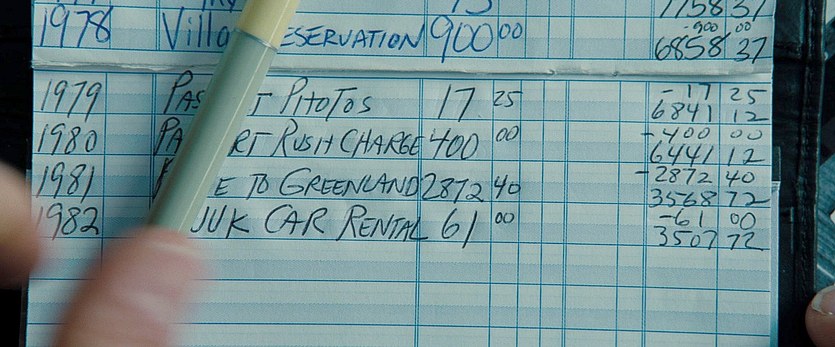 7758 37
1978 Villa RESERVATION 900 00 -900 00
6858 37
1979 PASSPORT PHOTOS 17 25 -17 25
6841 12
1980 PASSPORT RUSH CHARGE 400 00 -400 00
6441 12
1981 E TO GREENLAND 2872 40 -2872 40
3568 72
1982 UK CAR RENTAL 61 00 -61 00
3507 72